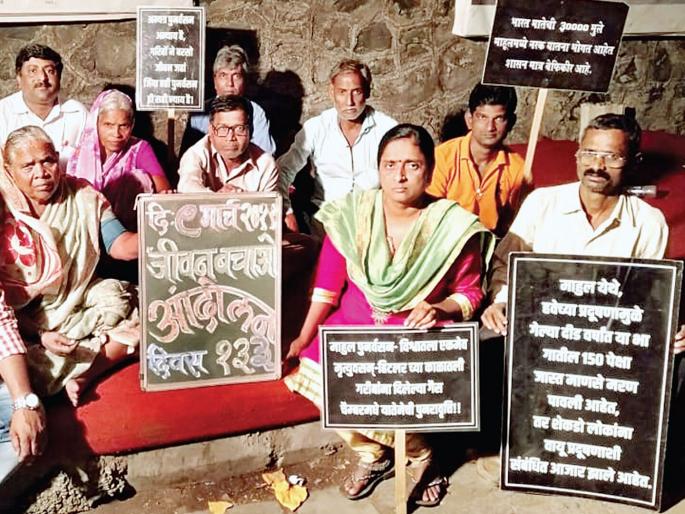 अन्यत्र पुनर्वसन
अन्याय है,
गरिबों ने बरसो
जीवन जहां
जिया वही पुनर्वसन
ही सही न्याय है!
भारत मातेची 30000 मुले
माहुलमध्ये नरक यातना भोगत आहेत
शासन मात्र बेफिकीर आहे.
दि-८ मार्च २०१९
जीवन बचाओ
आंदोलन
दिवस १३३
माहुल पुनर्वसन- विश्वातला एकमेव
मृत्युवसन्-हिटलर च्या काळातली
गरीबांना दिलेल्या गॅस
चेम्बरमधे यातनेची पुनरावृत्ति!!
माहुल येथे,
हवेच्या प्रदूषणामुळे
गेल्या दीड वर्षात या भा
गातील 150 पेक्षा
जास्त माणसे मरण
पावली आहेत,
तर शेकडो लोकांना
वायू प्रदूषणाशी
संबंधित आजार झाले आहेत.